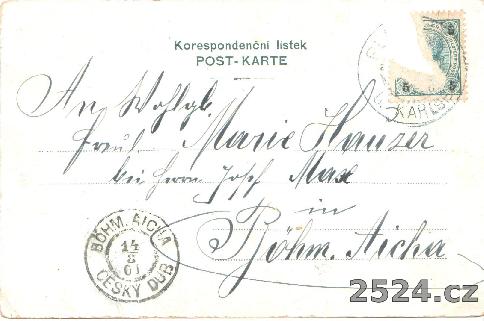 Korespondenční lístek
POST-KARTE
5 5
KARLSB
An Wohlgb.
Marie Hauser
bei Herrn Josef Max
in
Böhm. Aicha
BÖHM. AICHA
14
8
01
ČESKÝ DUB
2524.cz